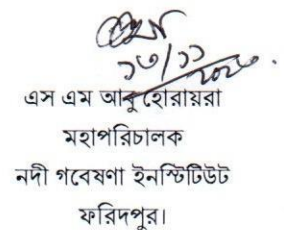 ১৩/১১
এস এম আবু হোরায়রা
মহাপরিচালক
নদী গবেষণা ইনস্টিটিউট
ফরিদপুর।